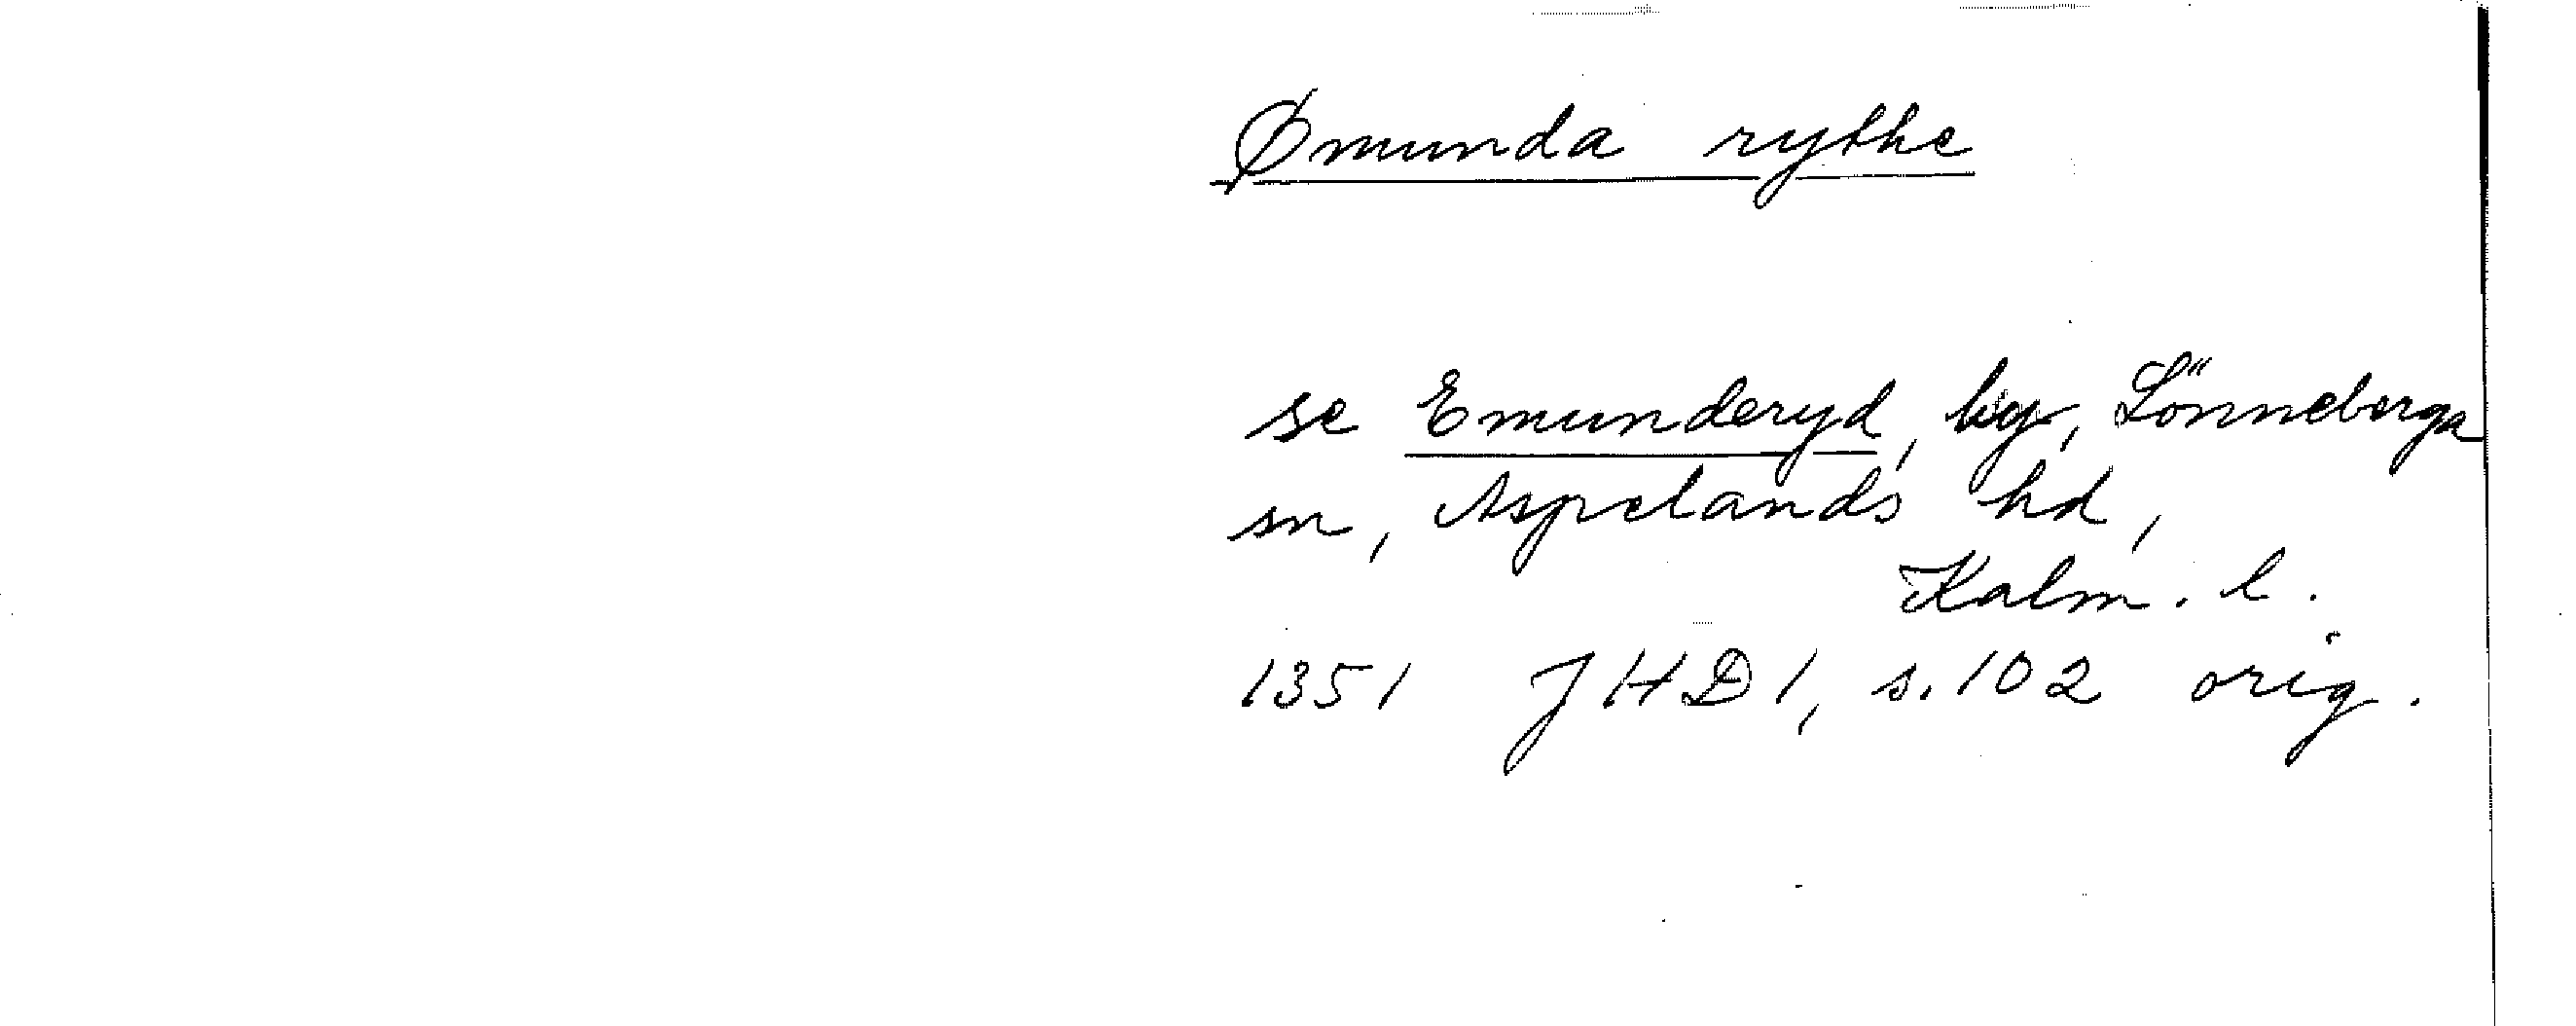 Ømunda rythe
se Emunderyd, by, Lönneberga
sn, Aspelands hd,
Kalm. l.
1351 JHD 1, s. 102 orig.